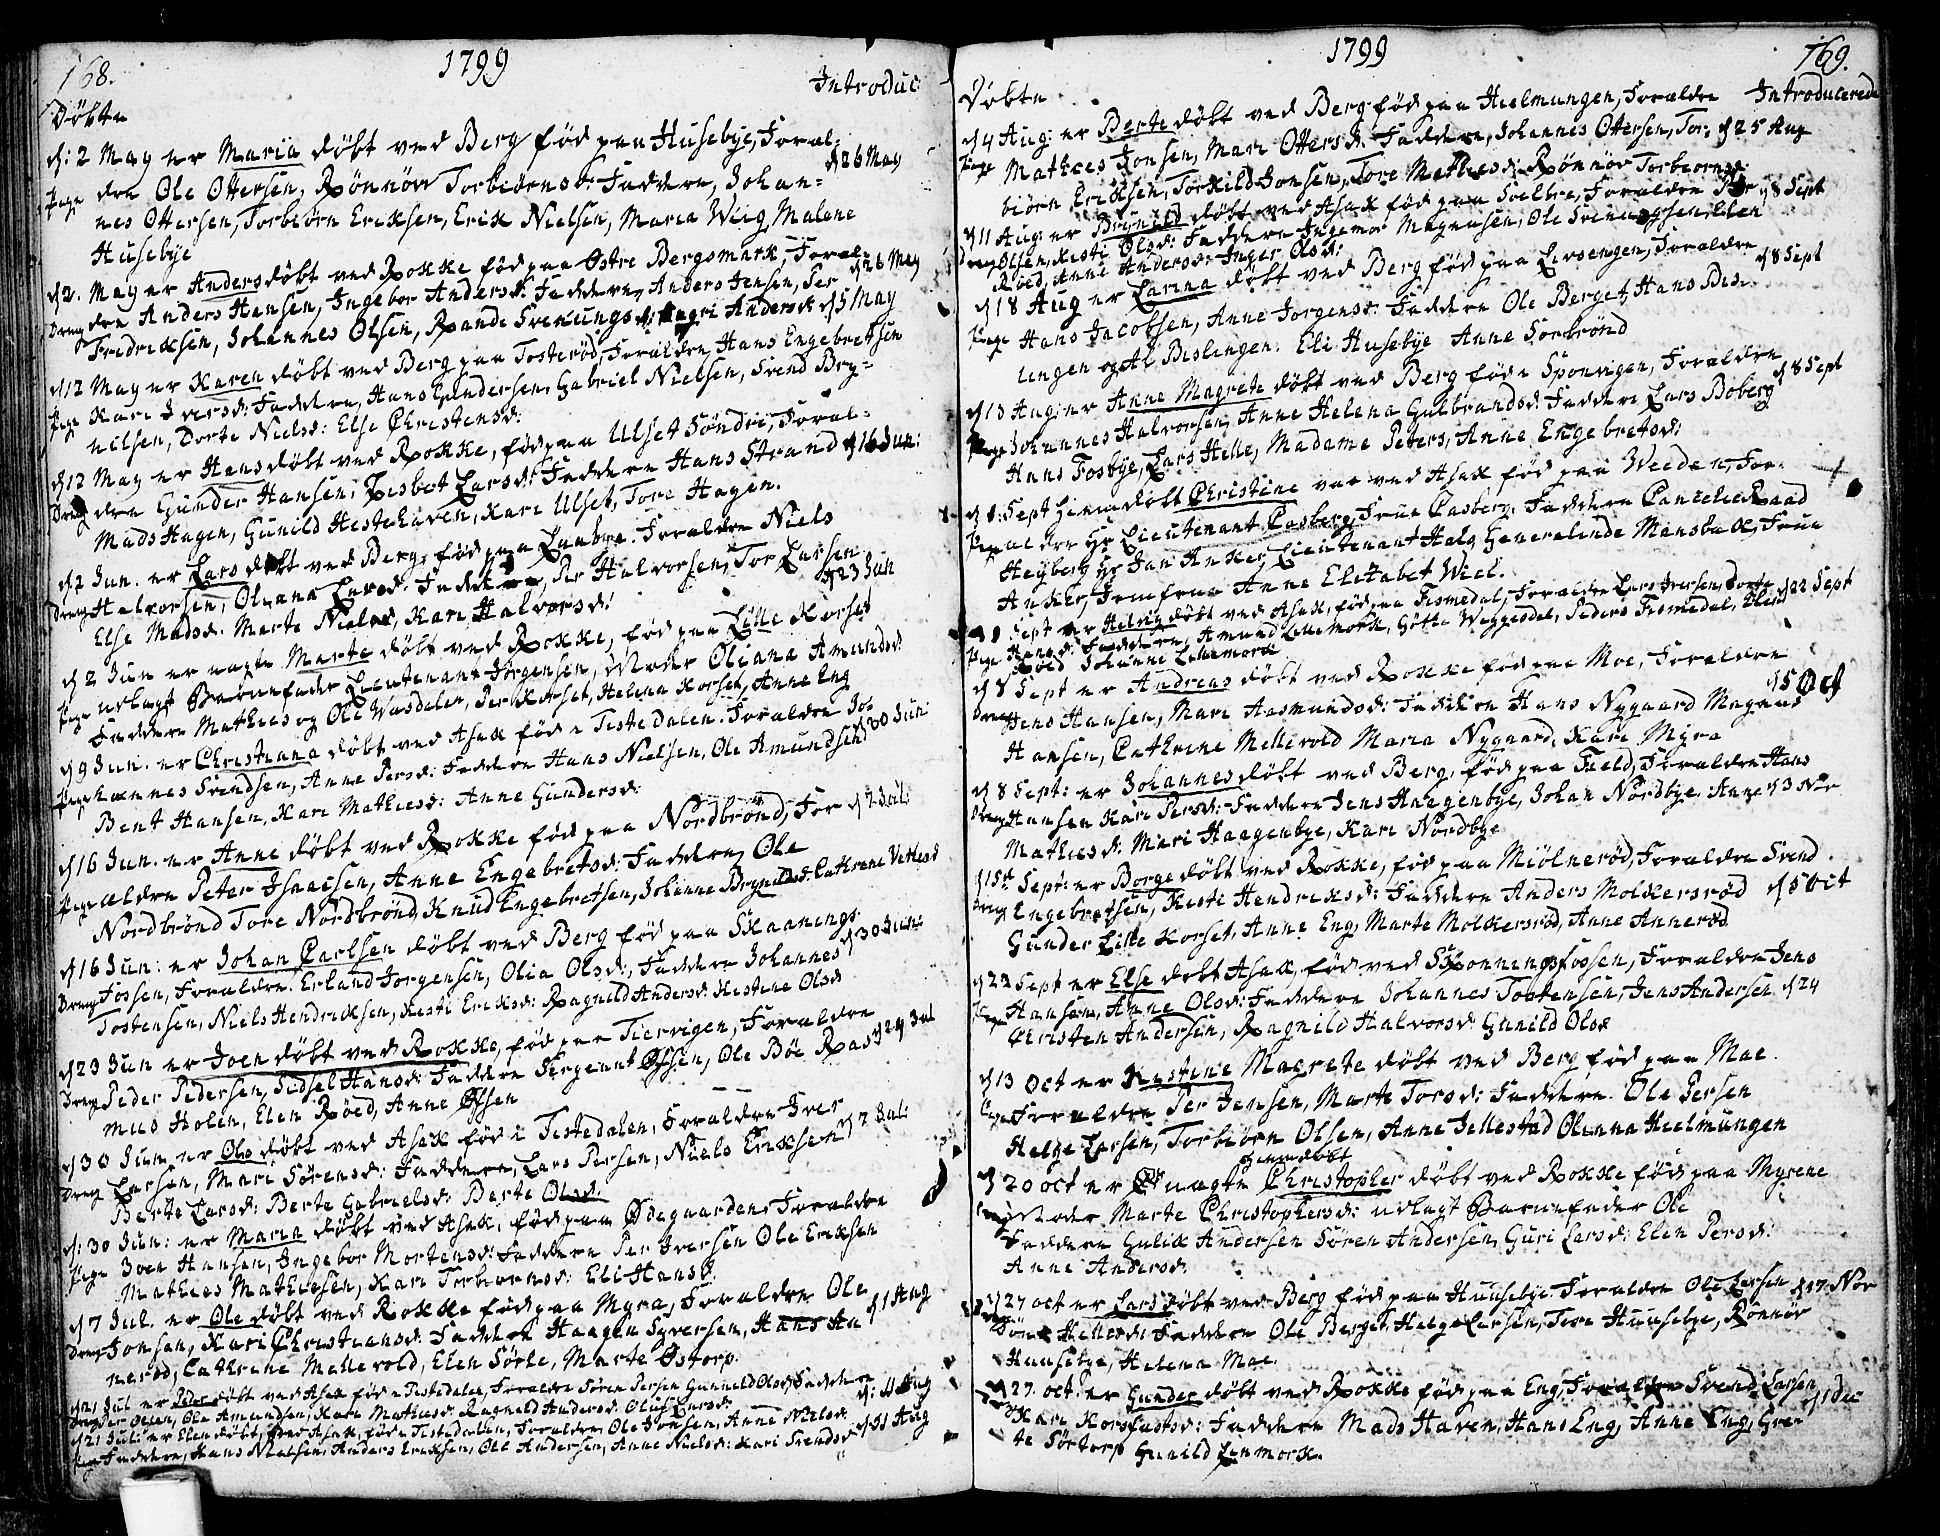 168.
1799
Introduc:
Döbte
d: 2 May er Maria döbt ved Berg föd paa Husebye, Foræl-
Pige dre Ole Ottersen, Rönnöv Torbiörnsd: Faddere, Johan- d 26 May
nes Ottersen, Torbiörn Eriksen, Erik Nielsen, Maria Wiig, Malene
Husebye
d 2. May er Anders döbt ved Rokke föd paa Östre Bergsmark, Foræl-
Dreng dre Anders Hansen, Ingebor Andersd: Faddere, Anders Jensen, Per d 26 May
Fredriksen, Johannes Olsen, Randi Sveinungsd: Andersd: d 5 May
d 12 May er Karen döbt ved Berg paa Tosteröd, Forældre, Hans Engebretsen
Pige Kari Iversd: Faddere, Hans Gundersen, Gabriel Nielsen, Svend Bry-
nilsen, Dorte Nielsd: Else Christensd:
d 12 May er Hans döbt ved Rokke, föd paa Ulset Söndre, Foræl-
Dreng dre Gunder Hansen, Lisbet Larsd: Faddere Hans Strand d 16 Jun:
Mads Hagen, Gunild Hestehaven, Kari Ulset, Tore Hagen.
d 2 Jun. er Lars döbt ved Berg, föd paa Forældre Niels
Dreng Halvorsen, Oleana Larsd: Faddere, Per Halvorsen, Tor Larsen
Else Madsd. Marte Nielsd, Kari Halvorsd: d 23 Jun
d 2 Jun er uægte Marte döbt ved Rokke, föd paa Lille Korset
Pige udlagt Barnefader Lieutenant Jörgensen, Moder Oliana Amundsd:
Faddere Mathies og Ole Wasdalen, Per Korset, Helena Korset, Anne Eng
d 9 Jun. er Christiana döbt ved Asak föd i Tistedalen. Forældre Jo-
Pige hannes Svendsen, Anne Persd: Faddere Hans Nielsen, Ole Amundsen d 30 Jun:
Bent Hansen, Kari Mathiesd: Anne Gundersd:
d 16 Jun. er Anne döbt ved Rokke föd paa Nordbrönd, For d 7 Jul:
Pige ældre Peter Isaacsen, Anne Engebretsd: Faddere, Ole
Nordbrönd Tore Nordbrönd, Knud Engebretsen, Johanne Brynildsd. Cathrene
d 16 Jun: er Johan Carlsen döbt ved Berg föd paa Skaanings-
Dreng Fossen, Forældre. Erland Jorgensen, Olia Olsd:, Faddere Johannes d 30 Jun:
Tostensen, Niels Hendriksen, Kisti Eriksd: Ragnild Andersd: Kestene Olsd
d 23 Jun er Joen döbt ved Rokke, föd paa Tiervigen, Forældre
Dreng Peder Pedersen, Sidsel Hansd: Faddere Sergeant Offsen, Ole Böe Ras- d 24 Jul
mus Holen, Elen Röed, Anne Offsen
d 30 Jun er Ole döbt ved Asak föd i Tistedalen, Forældre Iver
Dreng Larsen, Mari Sörensd: Faddere, Lars Persen, Niels Eriksen d 7 Jul:
Berte Larsd: Berte Gabrielsd: Berte Olsd:
d: 30 Jun: er Maria döbt ved Asak, föd paa Ödegaarden Forældre
Pige Joen Hansen, Ingebor Mortensd: Faddere Per Iversen Ole Eriksen
Mathies Mathiesen, Kari Torbiörnsd: Eli Hansd.
d 7 Jul. er Ole döbt ved Rokke föd paa Myra, Forældre Ole
Dreng Jonsen, Kari Christiansd: Faddere Haagen Syversen, Hans An d 1 Aug
neröd, Cathrine Mellevold, Elen Sörle, Marte Östorp.
d 21 Jul er Peder döbt ved Asak föd i Tistedalen, Forældre Sören Persen Gunnild Olsd: Faddere
Dreng Per Olsen, Ole Amundsen, Kari Mathiesd: Ragnild Andersd: Olia Larsd: d: 11 Aug
d 21 Jul: er Elen döbt, ved Asak, föd i Tistedalen, Forældre Ole Jonsen, Anne Nielsd:
Pige Faddere, Hans Nielsen, Anders Eriksen, Ole Andersen, Anne Nielsd: Kari Svendsd d 11 Aug
1799
169.
Döbte
Introducerede
d 4 Aug: er Berte döbt ved Berg föd paa Hielmungen, Forældre
Pige Mathies Jonsen, Mari Ottersd. Faddere, Johannes Ottersen, Tor- d 25 Aug
biörn Eriksen, Torkild Jonsen, Tore Mathiesd: Rönnöv Torbiörnsd:
d 11 Aug: er Brynild döbt ved Asak föd paa Soelbre, Forældre Per d 8 Sept
Dreng Olsen, Kisti Olsd: Faddere Ingemor Magnusen, Ole Sveinungsen, Elen
Röed, Anne Andersd: Inger Olsd:
d 18 Aug er Larina döbt ved Berg föd paa Forældre d 8 Sept
Pige Hans Jacobsen, Anne Jorgensd: Faddere Ole Berget, Hans Bis-
lingen og Bislingen. Eli Husebye Anne Sorbrönd
d 13 Aug: er Anne Magrete döbt ved Berg föd i Sponvigen, Forældre
Pige Johannes Halvorsen, Anne Helena Gulbrandsd: Faddere Lars Boberg d 8 Sept
Hans Tosbye, Lars Helle, Madame Peters, Anne Engebretsd:
d 1. Sept hiemdöbt Christine var ved Asak föd paa Weeden, For-
Pige ældre Hr Lieutenant Casberg, Frue Casberg. Faddere Cancelie Raad
Heyberg Hr Jan Anker, Lieutenant Generalinde Mansbak, Frue
Anker, Jomfrue Anne Elizabet Wiel.
Sept er Helvig döbt ved Asak, föd paa Tismedal, Forældre Lars Iversen, Dorte
Pige Hansd: Faddere, Amund Lillemork, Götte Peders Tismedal, Elen d 22 Sept
Röed Johanne Lillemork
d 8 Sept er Andreas döbt ved Rokke föd paa Moe, Forældre
Dreng Jens Hansen, Mari Aasmundsd: Faddere Hans Nygaard Magnus d 5 Oct
Hansen, Cathrine Mellevold Maria Nygaard, Kari Myra
d 8 Sept: er Johannes döbt ved Berg, föd paa Field, Forældre Hans
Dreng Hansen Kari Persd: Faddere Jens Haagenbye, Johan Nordbye. Anne d 3 Nov
Mathiesd: Mari Haagenbye, Kari Nordbye
d 15de Sept: er Borge döbt ved Rokke, föd paa Miölneröd, Forældre Svend
Dreng Engebretsen, Kisti Hendriksd: Faddere Anders Molkersröd d 5 Oct
Gunder Lille Korset, Anne Eng, Marte Molkersröd, Anne Anneröd
d 22 Sept er Else döbt Asak, föd ved Skonningsfossen, Forældre Jens
Pige Hansen, Anne Olsd: Faddere Johannes Tostensen, Jens Andersen d 24
Christen Andersen, Ragnild Halvorsd: Gunild Olsd
d 13 Oct er Kistine Magrete döbt ved Berg föd paa Moe.
Pige Forældre Per Jensen, Marte Torsd: Faddere. Ole Persen
Helge Larsen, Torbiörn Olsen, Anne Jellestad Olenna Hielmungen
hiemdöbt
d 20 Oct er uægte Christopher döbt ved Rokke föd paa Myrene
Dreng Moder Marte Christophersd: udlagt Barnefader Ole
Faddere Gulik Andersen Sören Andersen, Guri Larsd: Elen Persd:
Anne Andersd:
d 27 Oct er Lars döbt ved Berg föd paa Huusebye Forældre Ole Larsen d 17 Nov
Dreng Hellesd: Faddere Ole Berget, Helge Larsen, Tore Huusebye, Rönnöv
Huusebye, Helena Moe.
d 27 oct. er Gunder döbt ved Rokke föd paa Eng, Forældre Svend Larsen
Dreng Kari Korsfastsd: Faddere Mads Haven, Hans Eng, Anne Eng, Gre- d 1 Dec
te Sörtorp Gunild Lenmork.